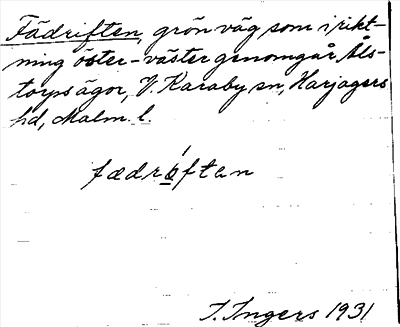 Fädriften, grön väg som i rikt-
ning öster-väster genomgår Als-
torps ägor, V. Karaby sn, Harjagers
hd, Malm. l.
fædrıften
I. Ingers 1931